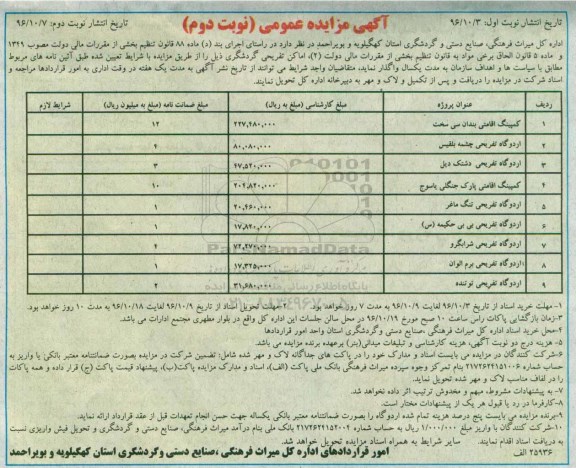 تاریخ انتشار نوبت اول: ۹۶/۱۰/۳
آگهی مزایده عمومی (نوبت دوم)
تاریخ انتشار نوبت دوم: ۹۶/۱۰/۷
اداره کل میراث فرهنگی، صنایع دستی و گردشگری استان کهگیلویه و بویراحمد در نظر دارد در راستای اجرای بند (د) ماده ۸۸ قانون تنظیم بخشی از مقررات مالی دولت مصوب ۱۳۴۹
و ماده ۵ قانون الحاق برخی مواد به قانون تنظیم بخشی از مقررات مالی دولت (۲)، اماکن تفریحی گردشگری ذیل را از طریق مزایده با شرایط تعیین شده طبق آئین نامه های مربوط
مطابق با سیاست ها و اهداف سازمان به مدت یکسال واگذار نماید، متقاضیان واجد شرایط می توانند از تاریخ نشر آگهی به مدت یک هفته در وقت اداری به امور قراردادها مراجعه و
اسناد شرکت در مزایده را دریافت و پس از تکمیل و لاک و مهر به دبیرخانه اداره کل تحویل نمایند.
ردیف عنوان پروژه مبلغ کارشناسی (مبلغ به ریال) مبلغ ضمانت نامه (مبلغ به میلیون ریال) شرایط لازم
۱ کمپینگ اقامتی بندان سی سخت ۲۲۷,۴۸۰,۰۰۰ ۱۲
۲ اردوگاه تفریحی چشمه بلقیس ۸۰,۰۸۰,۰۰۰ ۴
۳ اردوگاه تفریحی دشتک دیل ۴۷,۵۲۰,۰۰۰ ۳
۴ کمپینگ اقامتی پارک جنگلی یاسوج ۲۰۴,۸۲۰,۰۰۰ ۱۰
۵ اردوگاه تفریحی تنگ ماغر ۲۰,۴۶۰,۰۰۰ ۱
۶ اردوگاه تفریحی بی بی حکیمه (س) ۱۷,۸۲۰,۰۰۰ ۱
۷ اردوگاه تفریحی شرابگرو ۴
۸ اردوگاه تفریحی برم الوان ۱۷,۳۲۵,۰۰۰ ۱
۹ اردوگاه تفریحی توننده ۳۱,۶۸۰,۰۰۰ ۲
۱- مهلت خرید اسناد از تاریخ ۹۶/۱۰/۳ لغایت ۹۶/۱۰/۹ به مدت ۷ روز خواهد بود. ۲-مهلت تحویل اسناد از تاریخ ۹۶/۱۰/۹ لغایت ۹۶/۱۰/۱۸ به مدت ۱۰ روز خواهد بود.
۳-زمان بازگشایی پاکات راس ساعت ۱۰ صبح مورخ ۹۶/۱۰/۱۹ در محل سالن جلسات این اداره کل واقع در بلوار مطهری مجتمع ادارات می باشد.
۴-محل خرید اسناد اداره کل میراث فرهنگی ،صنایع دستی و گردشگری استان واحد امور قراردادها
۵- هزینه درج دو نوبت آگهی، هزینه کارشناسی و تبلیغات میدانی(بنر) برعهده برنده مزایده می باشد.
۶-شرکت کنندگان در مزایده می بایست اسناد و مدارک خود را در پاکت های جداگانه لاک و مهر شده شامل: تضمین شرکت در مزایده بصورت ضمانتنامه معتبر بانکی یا واریز به
حساب شماره ۲۱۷۲۶۴۲۱۵۱۰۰۶ بنام تمرکز وجوه سپرده میراث فرهنگی بانک ملی پاکت (الف)، اسناد و مدارک مزایده پاکت(ب)، پیشنهاد قیمت پاکت (ج) قرار داده و همه پاکات
را در لفاف مناسب لاک و مهر شده تحویل نماید.
۷- به پیشنهادات مشروط، مبهم و مخدوش ترتیب اثر داده نخواهد شد.
۸-کارفرما در رد یا قبول هر یک از پیشنهادات مختار است.
۹-برنده مزایده می بایست پنج درصد هزینه تمام شده اردوگاه را بصورت ضمانتنامه معتبر بانکی یکساله جهت حسن انجام تعهدات قبل از عقد قرارداد ارائه نماید.
۱۰-شرکت کنندگان با واریز مبلغ ۱/۰۰۰/۰۰۰ ریال به حساب شماره ۲۱۷۲۶۴۲۱۵۲۰۰۴ بانک ملی بنام درآمد میراث فرهنگی، صنایع دستی و گردشگری و تحویل فیش واریزی نسبت
به دریافت اسناد اقدام نمایند. سایر شرایط به همراه اسناد مزایده تحویل خواهد شد.
۲۵۹۳۶ الف
امور قراردادهای اداره کل میراث فرهنگی ،صنایع دستی وگردشگری استان کهگیلویه و بویراحمد